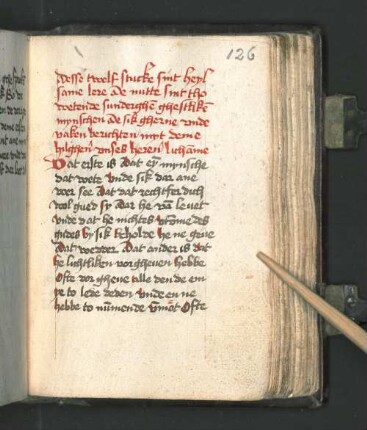 126
Desse twolf stucke sint heyl
same lere de nutte sint tho
wetende sunderghen gheistliken
mynschen de sik gherne vnde
vaken berichten myt deme
hilghen vnses heren lichamme
Dat erste is dat eyn mynsche
dat wete vnde sik dar ane
voer see dat dat rechtferdich
wol gud sy dar he van leuet
vnde dat he nichtes vromedes
gudes by sik beholde he ne geue
dat wedder Dat ander is dat
he lichtliken vorgheuen hebbe
Ofte vorgheue alle den de em
ye to lede deden vnde en ne
hebbe to nummende Ofte